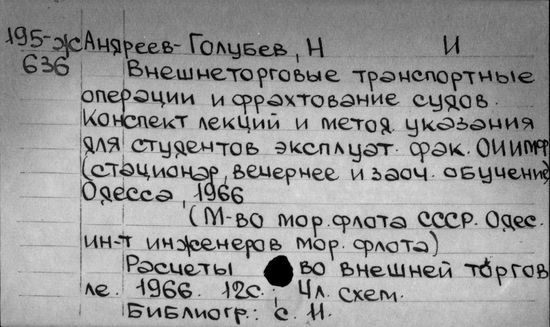 195-ж Андреев-Голубев, Н И
636 Внешнеторговые транспортные
операции и фрахтование судов.
Конспект лекций и метод. указания
для студентов эксплуат. фак. ОИИМФ
(стационар, вечернее и заоч. обучение)
Одесса, 1966
(М-во мор. флота СССР. Одес.
ин-т инженеров мор. флота)
Расчеты во внешней торгов
ле. 1966. 12с.; 4л. схем.
Библиогр.: с. 11.